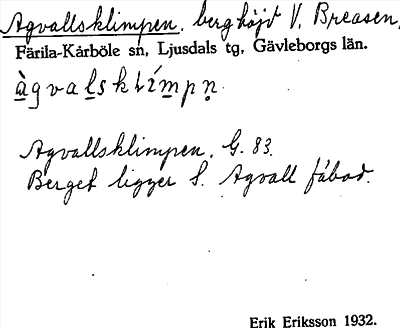 Agvallsklimpen. berghöjd V. Breasen.
Färila-Kårböle sn, Ljusdals tg, Gävleborgs län.
àgvalsklímpn.
Agvallsklimpen. G. 83.
Berget ligger S. Agvall fäbod.
Erik Eriksson 1932.